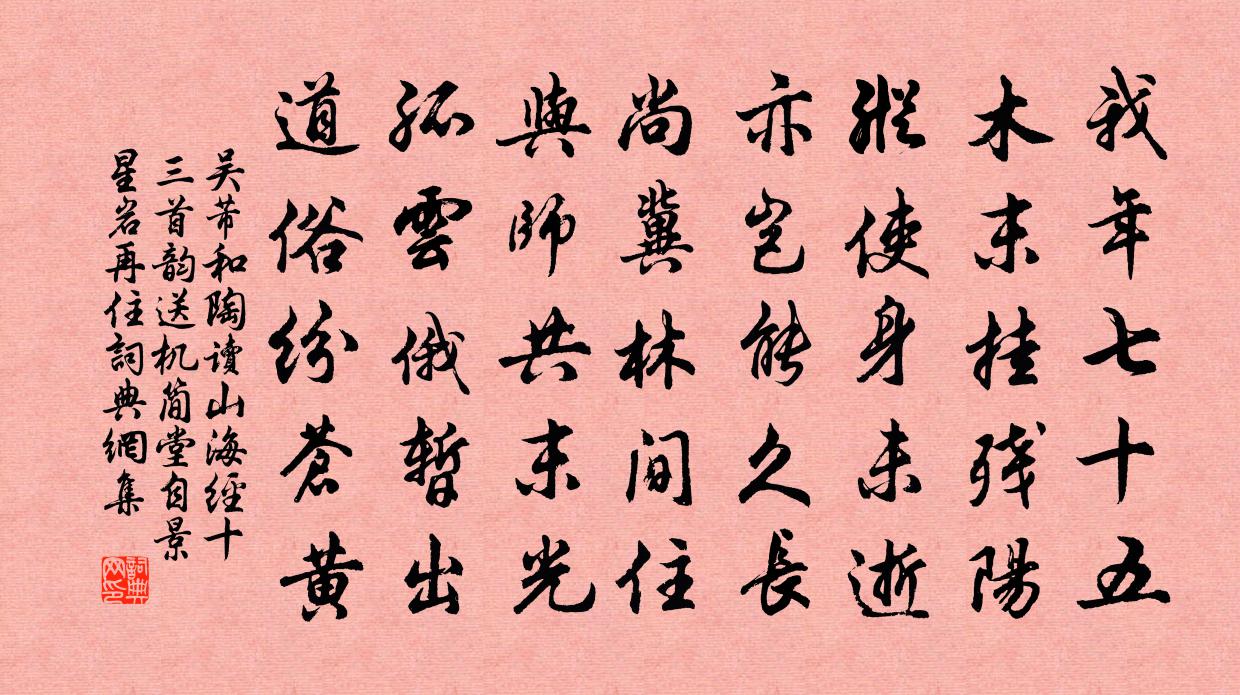 我年七十五
木末挂残陽
縱使身未逝
亦豈能久長
尚冀林間住
與師共末光
孤雲俄暫出
道俗紛蒼黃
吴芾和陶讀山海經十
三首韵送机簡堂自景
星岩再住詞典網集
詞典网印